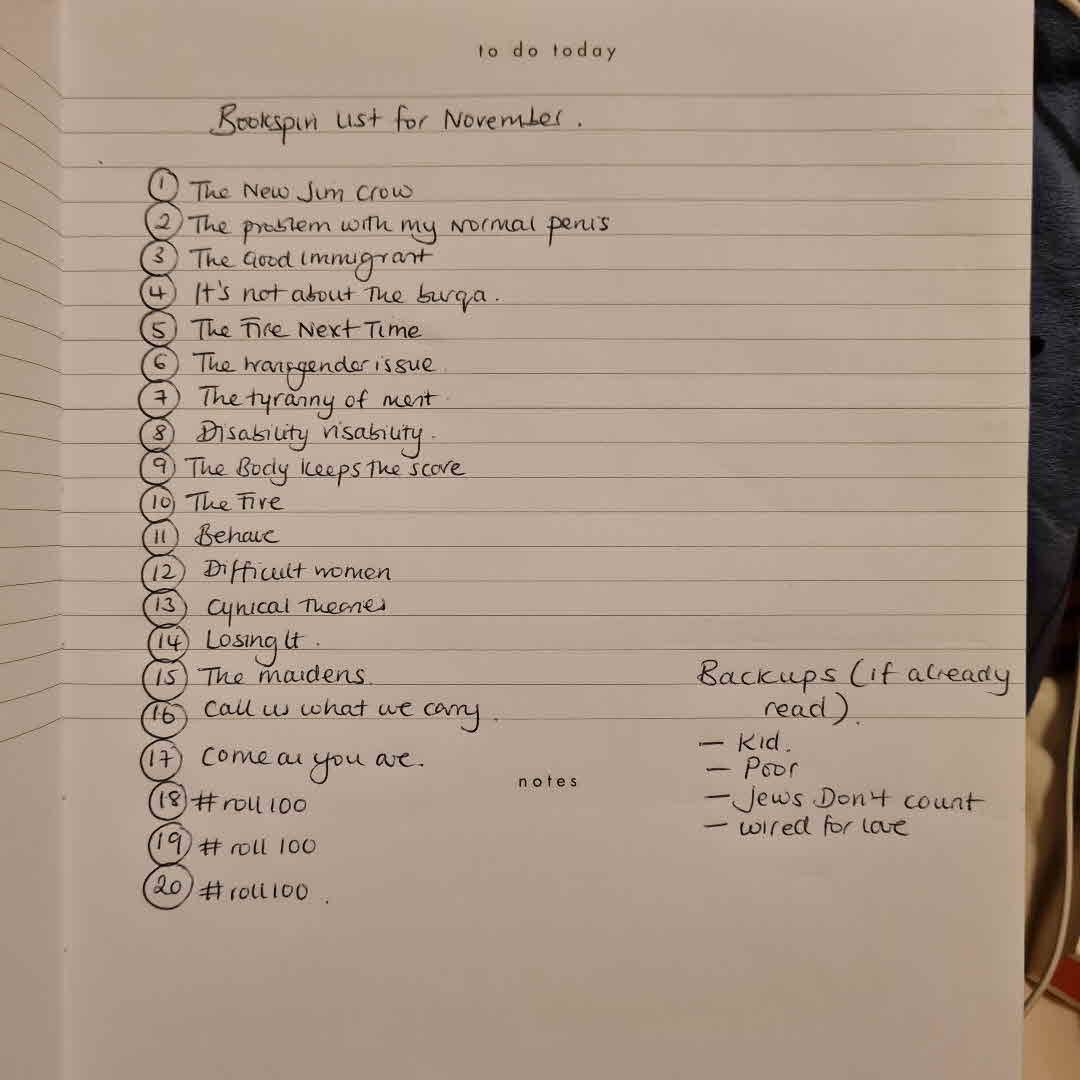 to do today
Bookspin List for November.
1 The New Jim Crow
2 The problem with my normal penis
3 The Good Immigrant
4 It's not about the burqa.
5 The Fire Next Time
6 The transgender issue
7 The tyranny of merit
8 Disability visability.
9 The Body keeps the score
10 The Fire
11 Behave
12 Difficult women
13 Cynical Theories
14 Losing It.
15 The maidens.
16 Call us what we carry.
17 Come as you are.
18 #roll100
19 #roll 100
20 #roll100.
notes
Backups (if already
read).
- Kid.
- Poor
- Jews Don't count
- wired for love